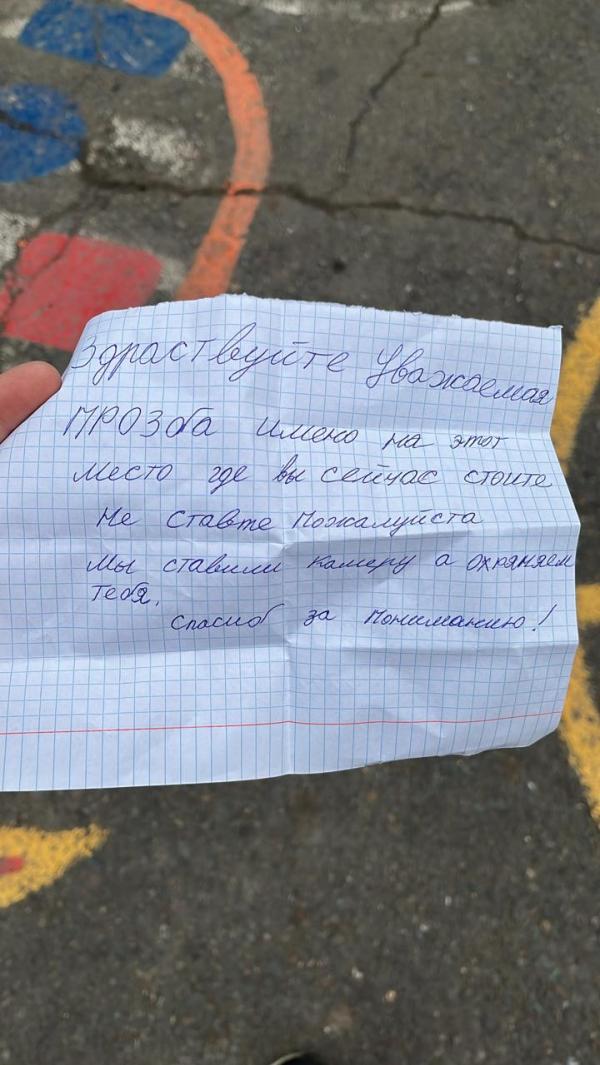 Здраствуйте Уважаемая
ПРОЗба имено на этот
место где вы сейчас стоите
Не ставте пожалуйста
Мы ставили камеру а охряняем
тебя.
спасиб за пониманию!